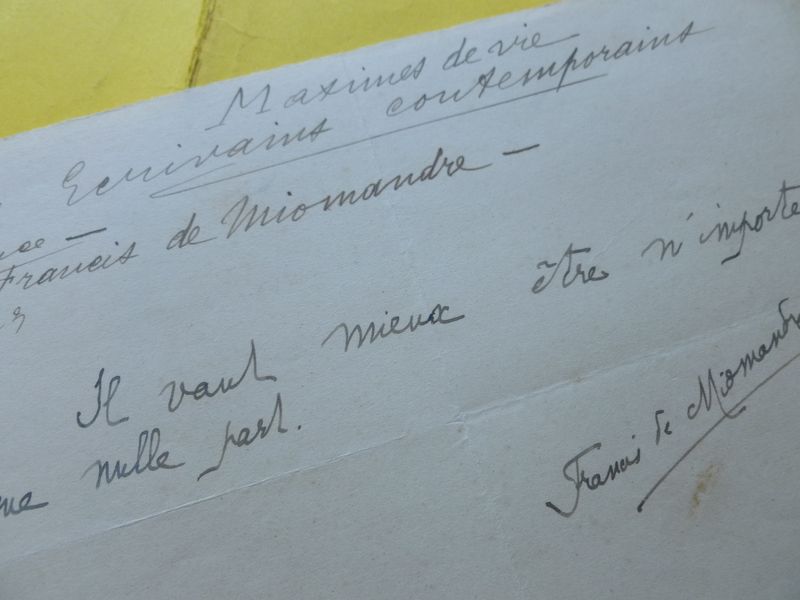 Maximes de vie
Ecrivains contemporains
Francis de Miomandre —
Il vaut mieux être n'importe
nulle part.
Francis de Miomandre